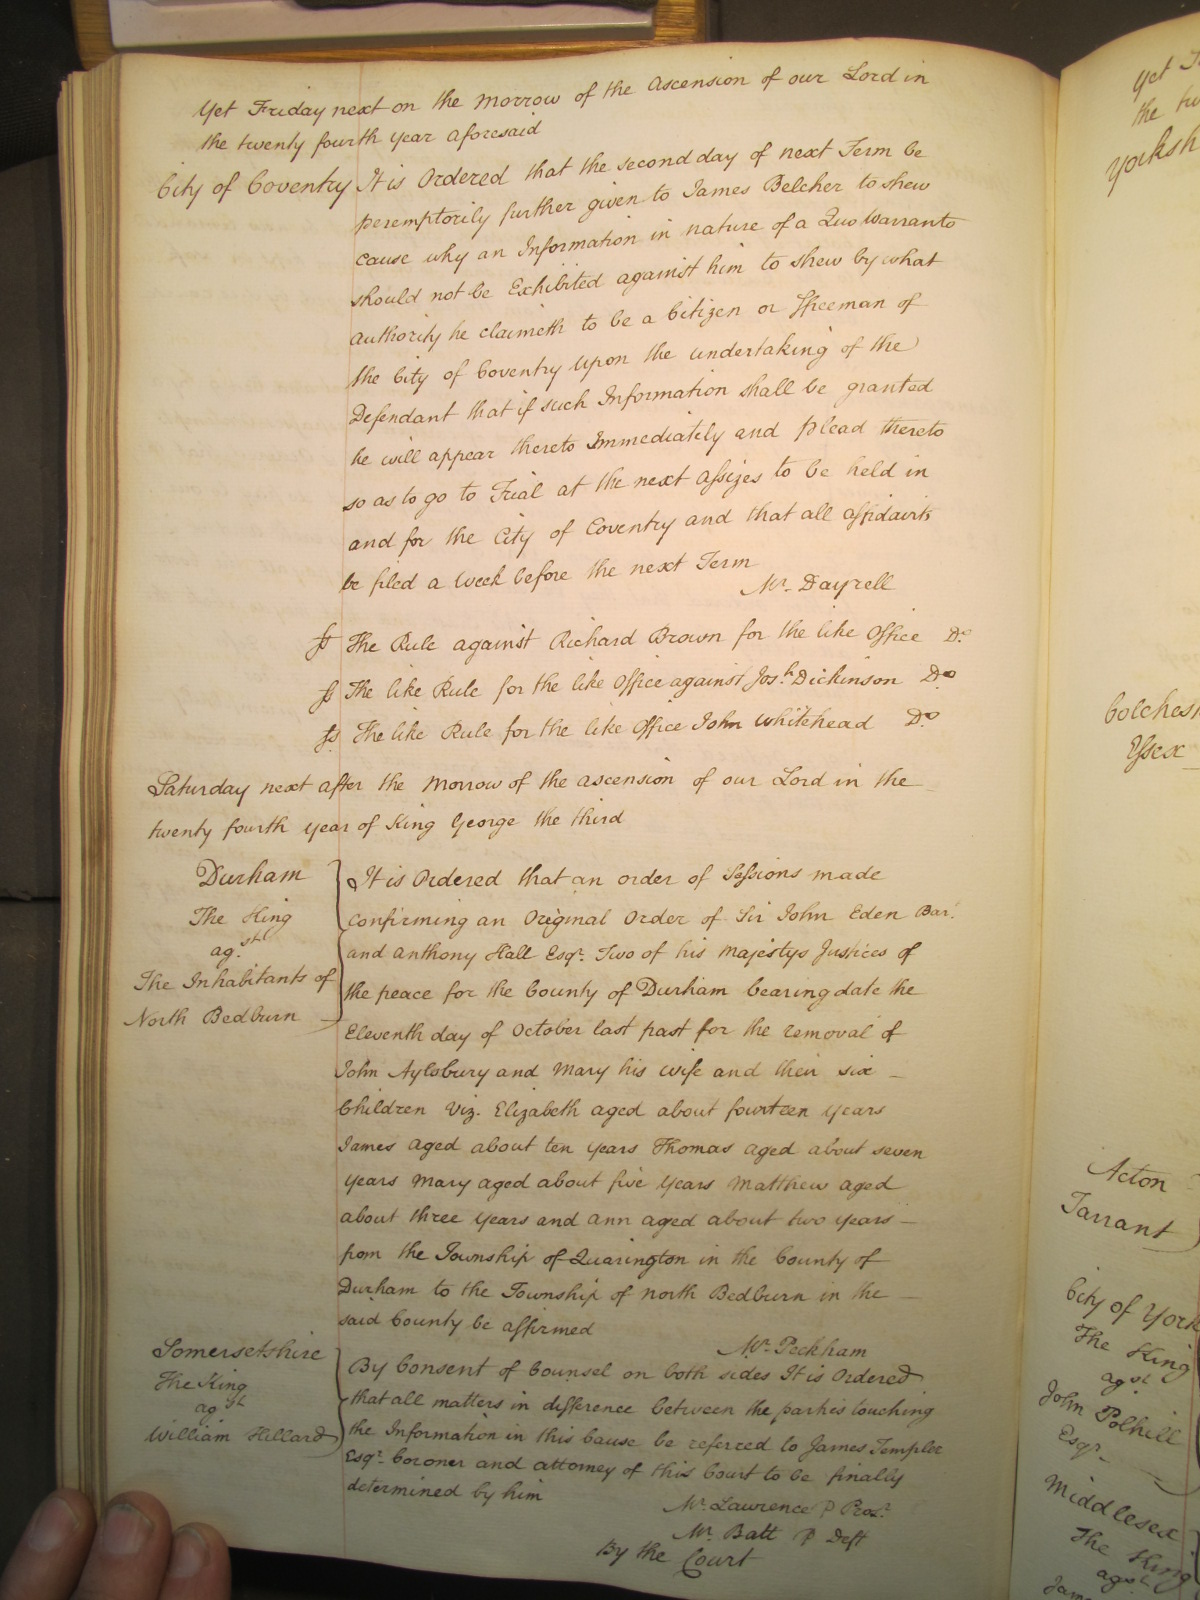 Yet Friday next on the Morrow of the Ascension of our Lord in
the twenty fourth year aforesaid
City of Coventry It is Ordered that the second day of next Term be
peremptorily further given to James Belcher to shew
cause why an Information in nature of a Quo Warranto
should not be Exhibited against him to shew by what
authority he claimeth to be a Citizen or ffreeman of
the City of Coventry upon the undertaking of the
Defendant that if such Information shall be granted
he will appear thereto Immediately and plead thereto
so as to go to Trial at the next Assizes to be held in
and for the City of Coventry and that all affidavits
be filed a Week before the next Term
Mr. Dayrell
The Rule against Richard Brown for the like Office Do.
The like Rule for the like Office against Josh. Dickinson Do.
The like Rule for the like Office John Whitehead Do.
Saturday next after the Morrow of the ascension of our Lord in the
twenty fourth year of King George the third
Durham
The King
agst.
The Inhabitants of
North Bedburn
It is Ordered that an order of Sessions made
confirming an Original Order of Sir John Eden Bart.
and Anthony Hall Esqr. Two of his Majestys Justices of
the peace for the County of Durham bearing date the
Eleventh day of October last past for the removal of
John Aylsbury and Mary his wife and their six
Children Viz. Elizabeth aged about fourteen years
James aged about ten years Thomas aged about seven
years Mary aged about five years Matthew aged
about three years and ann aged about two years
from the Township of Quarington in the County of
Durham to the Township of North Bedburn in the
said County be affirmed
Mr. Peckham
Somersetshire
The King
agst
William Hillard
By Consent of Counsel on both sides It is Ordered
that all matters in difference between the parties touching
the Information in this Cause be referred to James Templer
Esqr. Coroner and attorney of this Court to be finally
determined by him
Mr. Lawrence P Prosr.
Mr. Batt P Deft
By the Court
Yet
the tw
Yorksh
Colchest
Essex
Acton
Tarrant
City of York
The King
agst
John Polhill
Esqr.
Middlesex
The King
agst
Jam